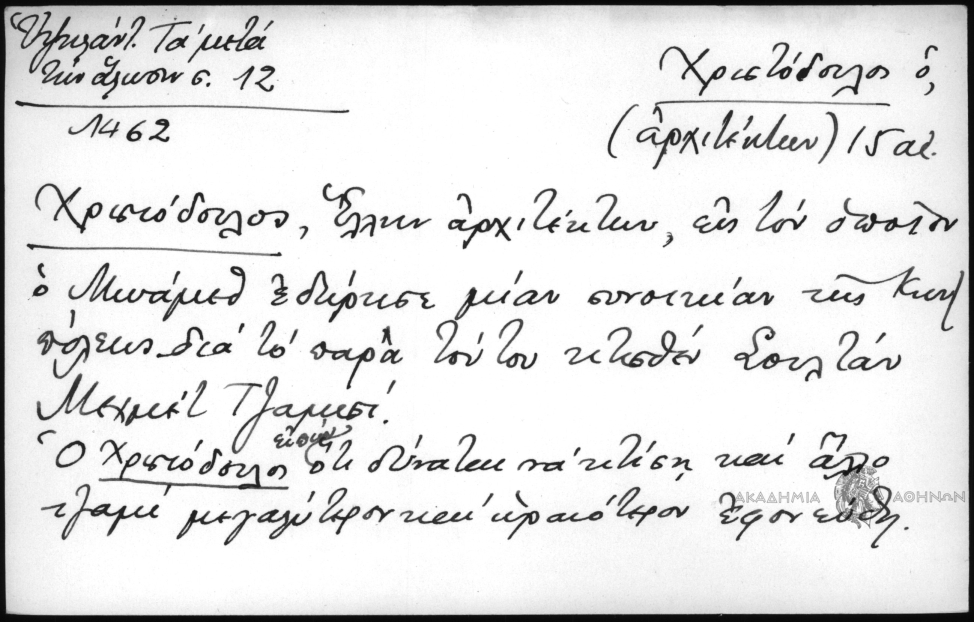 Ὑψηλάντ. Τά μετά
τήν ἅλωσιν σ. 12
1462
Χριστόδουλος ὁ,
(ἀρχιτέκτων) 15 αἰ.
Χριστόδουλος, Ἕλλην ἀρχιτέκτων, εἰς τόν ὁποῖον
ὁ Μωάμεθ ἐδώρησε μίαν συνοικίαν τῆς Κων/
πόλεως διά τό παρά τούτου κτισθέν Σουλτάν
Μεχμέτ Τζαμισί.
Ὁ Χριστόδουλος εἰπών ὅτι δύναται νά κτίση καί ἄλλο
τζαμί μεγαλύτερον καί ὡραιότερον ἐφονεύθη.
ΑΚΑΔΗΜΙΑ ΑΘΗΝΩΝ